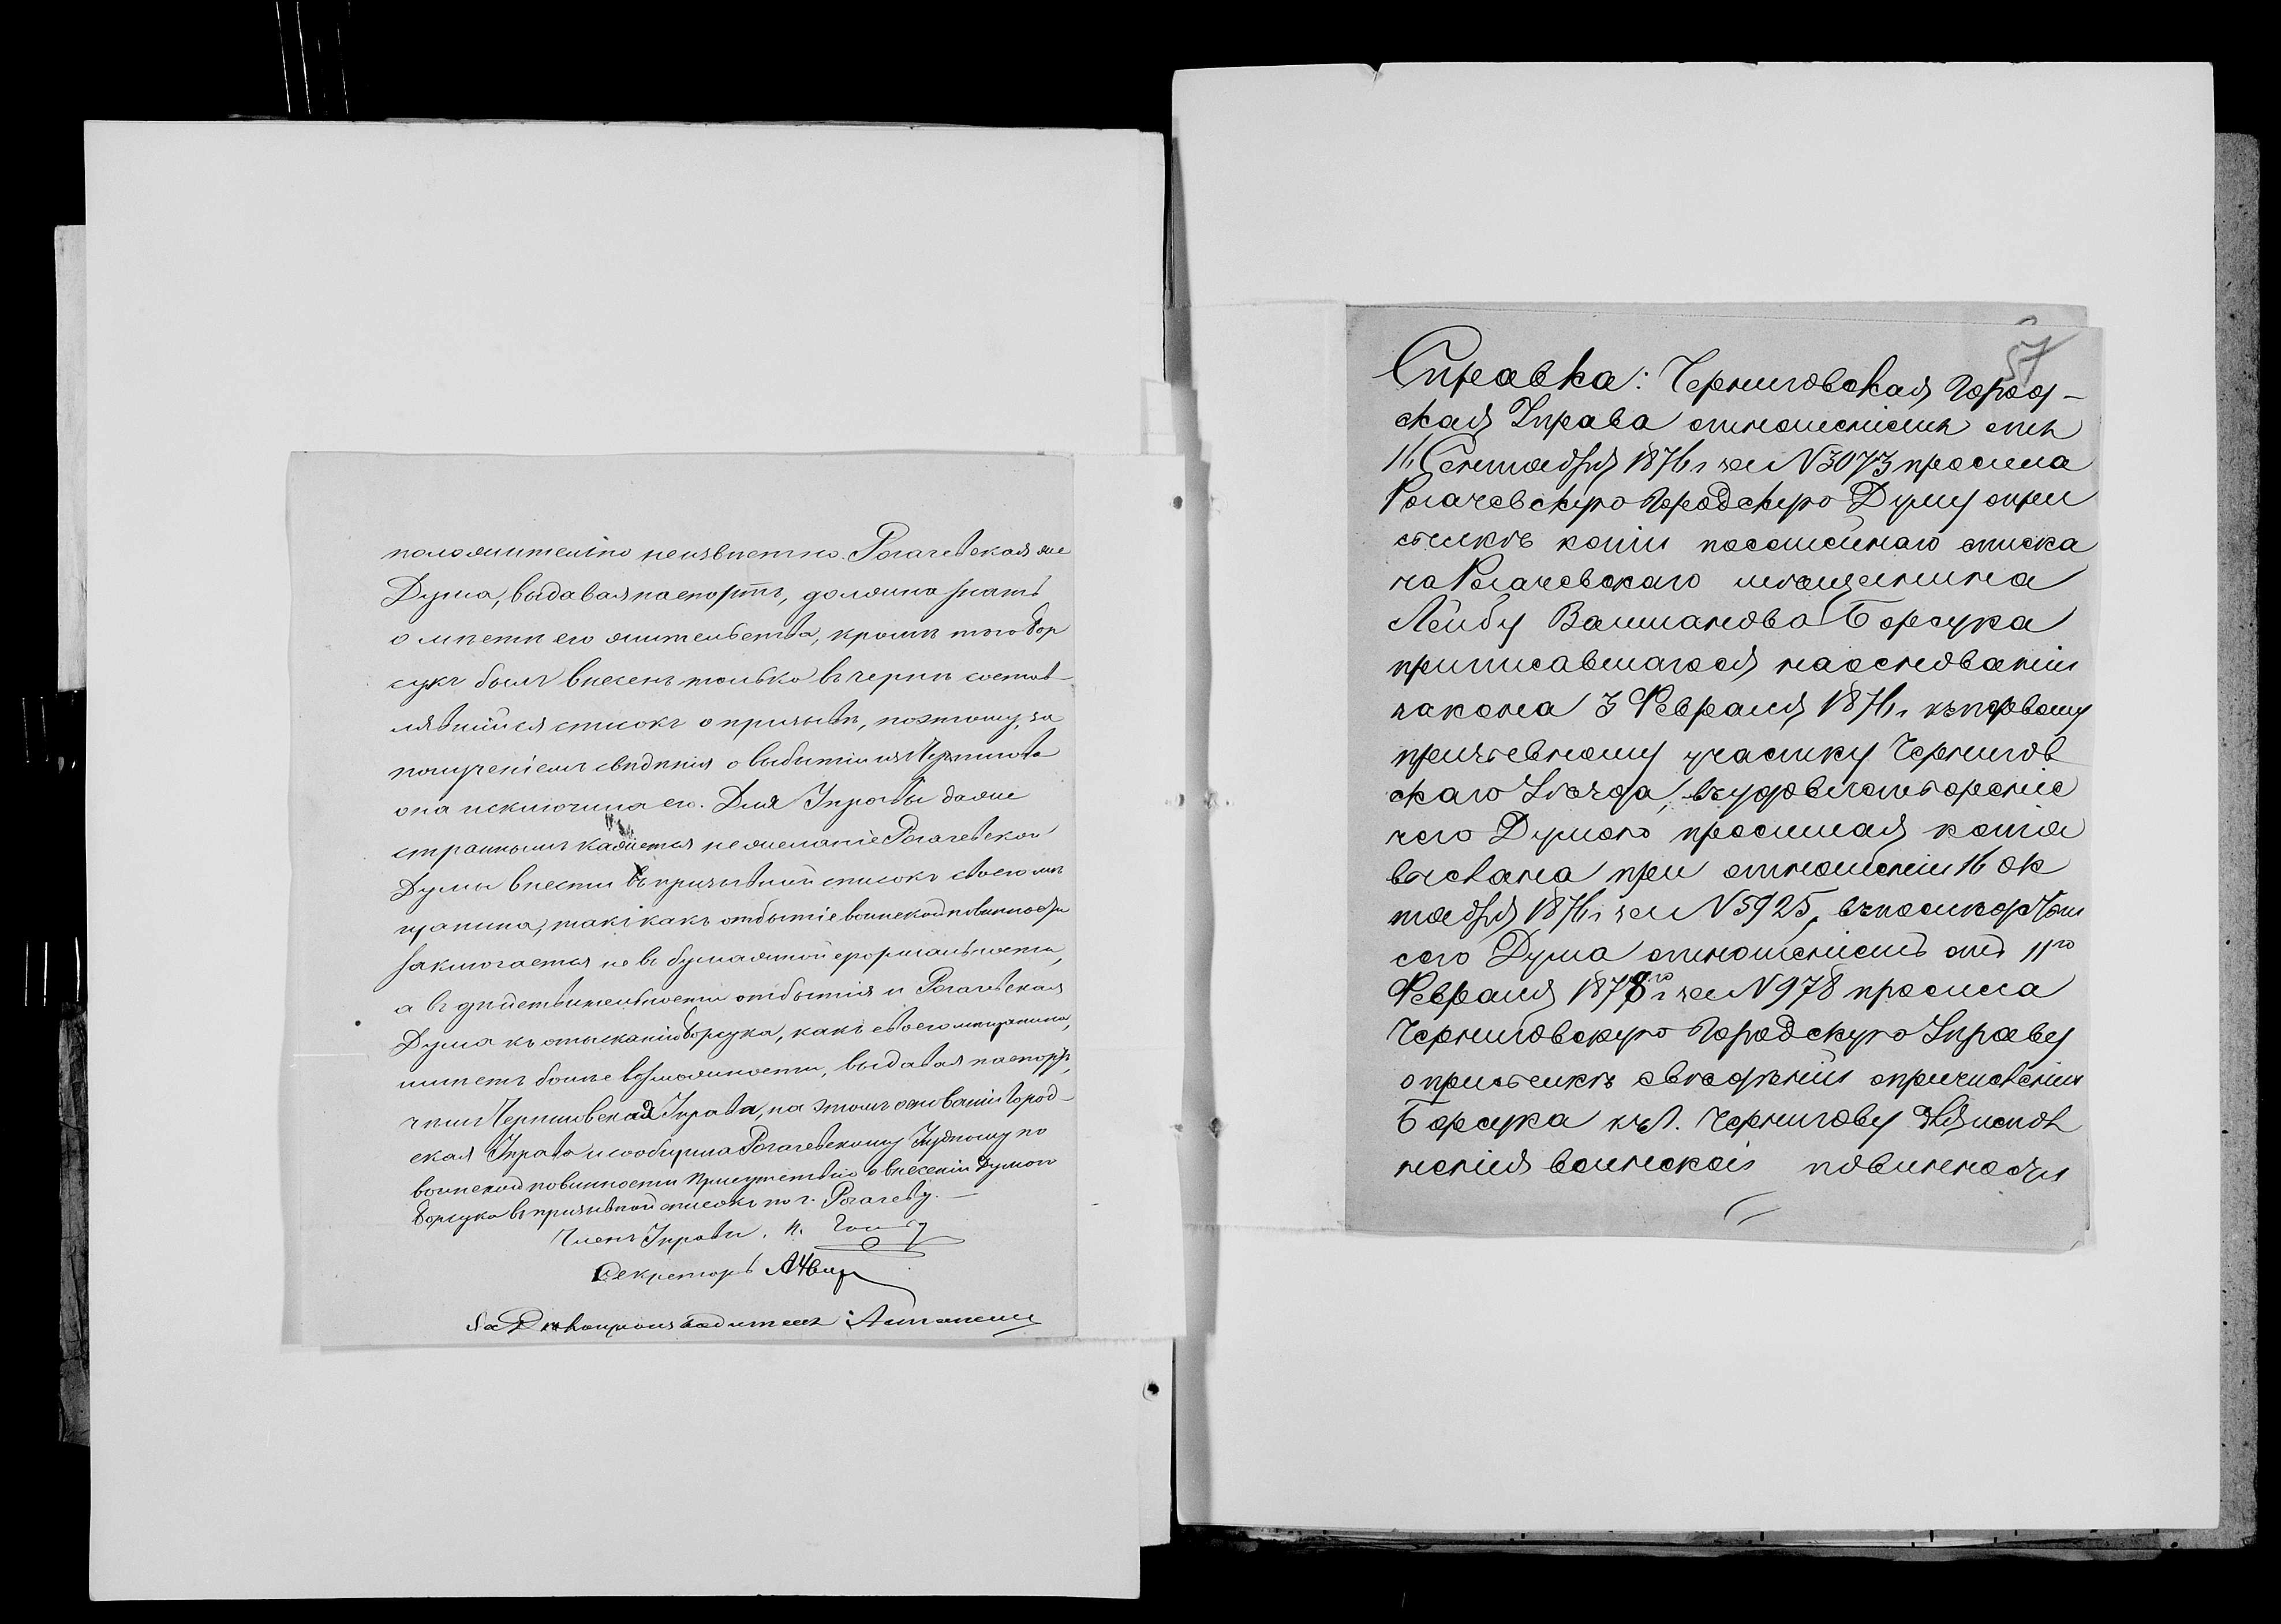 положительно неизвѣстно. Рогачевская же
Дума, выдавая паспортъ, должна знать
о мѣстѣ его жительства, кромѣ того Бор
сукъ былъ внесенъ только въ чернѣ состав-
лявшійся списокъ о призывѣ, поэтому, за
полученіемъ свѣдѣнія о выбытіи изъ Чернигова
она исключила его. Для Управы даже
страннымъ кажется нежеланіе Рогачевской
Думы внести въ призывный списокъ своего мѣ
щанина, такъ какъ отбытіе воинской повинности
заключается не въ бумажной формальности,
а въ дѣйствительности отбытія и Рогачевская
Дума къ отысканію Борсука, какъ своего мѣщанина,
имѣетъ болѣе возможности, выдавая паспортъ,
чѣмъ Черниговская Управа, на этомъ основаніи Город-
ская Управа и сообщила Рогачевскому Уѣздному по
воинской повинности Присутствію о внесеніи Думою
Борсука въ призывной списокъ по г. Рогачеву. —
Членъ Управы. Н.
Секретарь
За Дѣлопроизводителя
57
Справка: Черниговская Город-
ская Управа отношеніемъ отъ
16 Сентября 1876 г. за N 3073 просила
Рогачевскую Городскую Думу о при
сылкѣ копіи посемейнаго списка
на Рогачевскаго мѣщанина
Лейбу Борсука
приписавшагося на основаніи
закона 3 Февраля 1876 г. къ первому
призывному участку Чернигов
скаго Уѣзда, въ удовлетвореніе
чего Думою просимая копія
выслана при отношеніи 16 ок
тября 1876 г. за N 5925, въ послѣдствіи
сего Дума отношеніемъ отъ 11го
Февраля 1878го г. за N 978 просила
Черниговскую Городскую Управу
о присылкѣ свѣдѣній о причисленіи
Борсука къ г. Чернигову для испол
ненія воинской повинности